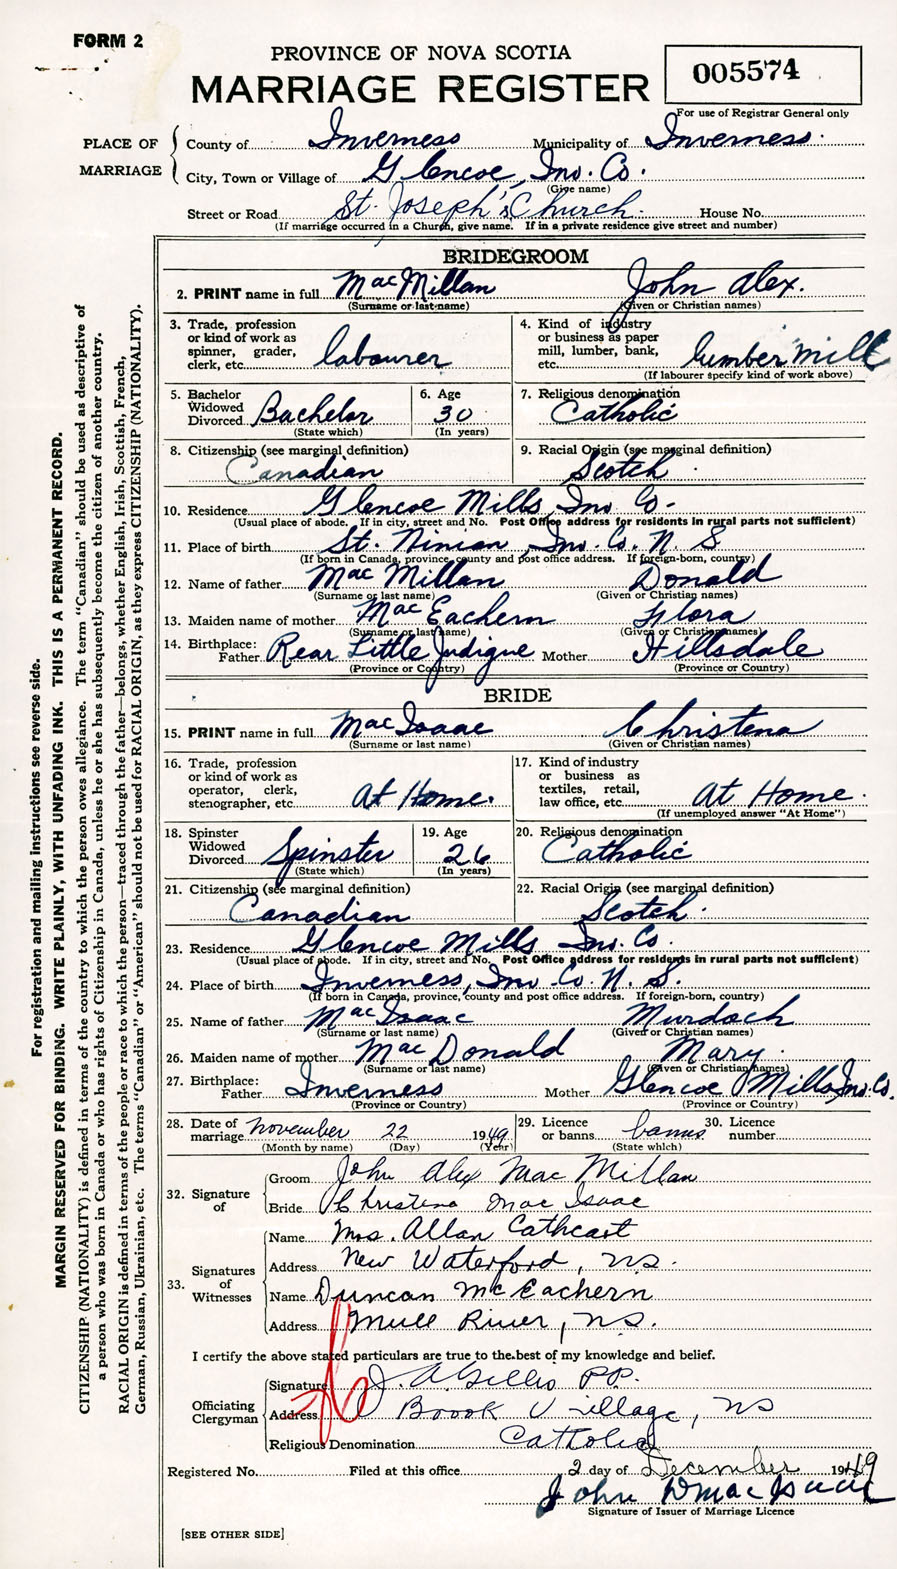 FORM 2
PROVINCE OF NOVA SCOTIA
MARRIAGE REGISTER
005574
For use of Registrar General only
PLACE OF MARRIAGE
County of Inverness Municipality of Inverness.
City, Town or Village of Glencoe, Inv. Co.
(Give name)
Street or Road St. Joseph's Church. House No.
(If marriage occurred in a Church, give name. If in a private residence give street and number)
BRIDEGROOM
2. PRINT name in full MacMillan John Alex.
(Surname or last name) (Given or Christian names)
3. Trade, profession or kind of work as spinner, grader, clerk, etc. labourer
4. Kind of industry or business as paper mill, lumber, bank, etc. lumber mill
(If labourer specify kind of work above)
5. Bachelor Widowed Divorced Bachelor
(State which)
6. Age 30
(In years)
7. Religious denomination
Catholic
8. Citizenship (see marginal definition)
Canadian
9. Racial Origin (see marginal definition)
Scotch
10. Residence Glencoe Mills, Inv Co.
(Usual place of abode. If in city, street and No. Post Office address for residents in rural parts not sufficient)
11. Place of birth St. Ninian, Inv. Co. N. S
(If born in Canada, province, county and post office address. If foreign-born, country)
12. Name of father Mac Millan Donald
(Surname or last name) (Given or Christian names)
13. Maiden name of mother Mac Eachern Flora
(Surname or last name) (Given or Christian names)
14. Birthplace: Father Rear Little Judique Mother Hillsdale
(Province or Country) (Province or Country)
BRIDE
15. PRINT name in full MacIsaac Christena
(Surname or last name) (Given or Christian names)
16. Trade, profession or kind of work as operator, clerk, stenographer, etc. At Home.
17. Kind of industry or business as textiles, retail, law office, etc. At Home.
(If unemployed answer "At Home")
18. Spinster Widowed Divorced Spinster
(State which)
19. Age 26
(In years)
20. Religious denomination
Catholic
21. Citizenship (see marginal definition)
Canadian
22. Racial Origin (see marginal definition)
Scotch.
23. Residence Glencoe Mills Inv. Co.
(Usual place of abode. If in city, street and No. Post Office address for residents in rural parts not sufficient)
24. Place of birth Inverness, Inv Co. N. S.
(If born in Canada, province, county and post office address. If foreign-born, country)
25. Name of father MacIsaac Murdoch
(Surname or last name) (Given or Christian names)
26. Maiden name of mother Mac Donald Mary.
(Surname or last name) (Given or Christian names)
27. Birthplace: Father Inverness Mother Glencoe Mills Inv. Co.
(Province or Country) (Province or Country)
28. Date of marriage November 22 1949
(Month by name) (Day) (Year)
29. Licence or banns banns
(State which)
30. Licence number
32. Signature of
Groom John Alex Mac Millan
Bride Christena Mac Isaac
33. Signatures of Witnesses
Name Mrs. Allan Cathcart
Address New Waterford, NS.
Name Duncan McEachern
Address Mull River, N.S.
I certify the above stated particulars are true to the best of my knowledge and belief.
Officiating Clergyman
Signature J. A. Gillis P.P.
Address Brook Village, NS
Religious Denomination Catholic
Registered No. Filed at this office 2 day of December 1949
John D MacIsaac
Signature of Issuer of Marriage Licence
[SEE OTHER SIDE]
For registration and mailing instructions see reverse side.
MARGIN RESERVED FOR BINDING. WRITE PLAINLY, WITH UNFADING INK. THIS IS A PERMANENT RECORD.
CITIZENSHIP (NATIONALITY) is defined in terms of the country to which the person owes allegiance. The term "Canadian" should be used as descriptive of
a person who was born in Canada or who has rights of Citizenship in Canada, unless he or she has subsequently become the citizen of another country.
RACIAL ORIGIN is defined in terms of the people or race to which the person—traced through the father—belongs, whether English, Irish, Scottish, French,
German, Russian, Ukrainian, etc. The terms "Canadian" or "American" should not be used for RACIAL ORIGIN, as they express CITIZENSHIP (NATIONALITY).